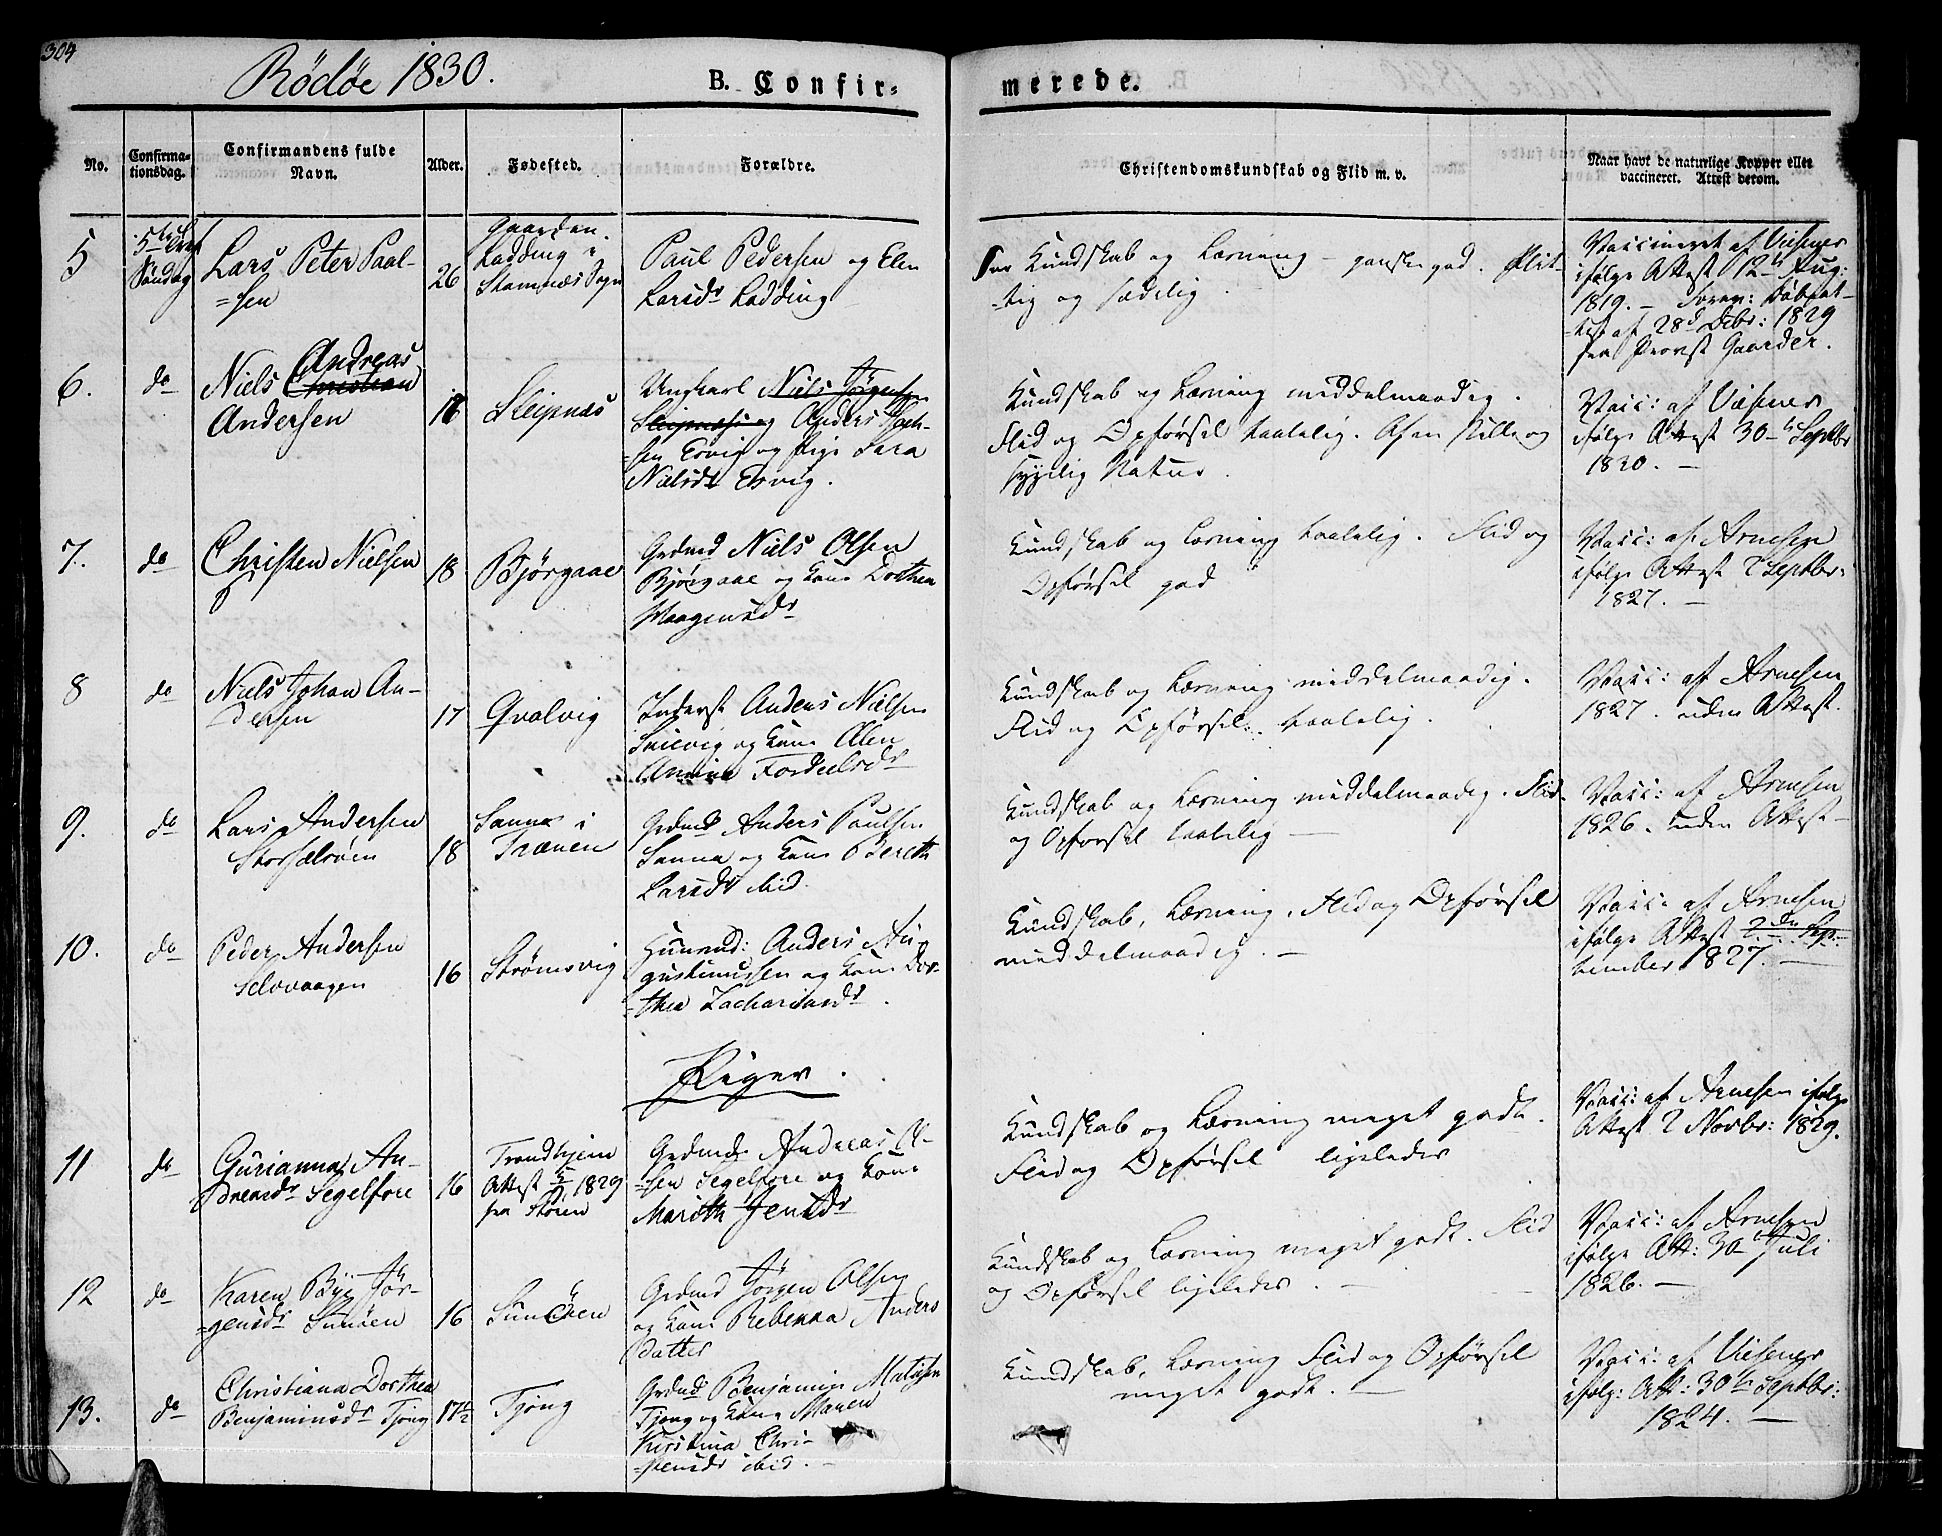 304
Rödöe 1830.
B. Confir-
merede.
No.
Confirma-
tionsdag.
Confirmandens fulde
Navn.
Alder.
Fødested.
Forældre.
Christendomskundskab og Flid m. v.
Naar havt de naturlige Kopper eller
vaccineret. Attest derom.
5
5te
Søndag
Lars Peter Paal-
=sen
26
Gaarden
Ladding i
Stamnæs Sogn
Paul Pedersen og Elen
Larsdr Ladding
Kundskab og Læsning - ganske god. Flit-
-tig og sædelig.
Vaccineret af Viesener
ifølge Attest 12te Aug:
1819. - Døbeat-
-test af 28de Decbr: 1829
fra Provst Gaarder.
6.
do
Niels Christian Andreas
Andersen
16
Sleipnæs
Ungkarl Niels Jörgensen
Sleipnæs og Anders
-sen Esvig og Pige Sara
Nielsdr Esvig.
Kundskab og Læsning meddelmaadig.
Flid og Opførsel taalelig. Af en stille og
Natur.
Vacc: af Viesener
ifølge Attest 30te Septbr
1820. -
7.
do
Christen Nielsen
18
Bjørgaae
Grdmd Niels Olsen
Bjørgaae og Kone Dorthea
Maagensdr
Kundskab og Læsning taalelig. Flid og
Opførsel god
Vacc: af Arnesen
ifølge Attest 2 Septbr:
1827. -
8
do
Niels Johan An-
dersen
17
Qvalvig
Inderst Anders Nielsen
og Kone Elen
Anna
Kundskab og Læsning meddelmaadig.
Flid og Opførsel taalelig.
Vacc: af Arnesen
1827. uden Attest.
9.
do
Lars Andersen
Storsælsöen
18
Sanna i
Trænen
Grdmd Anders Paulsen
Sanna og Kone Bereth
Larsdr ibid.
Kundskab og Læsning meddelmaadig. Flid
og Opførsel taalelig -
Vacc: af Arnesen
1826. uden Attest -
10.
do
Peder Andersen
Selvvaagen
16
Strömsvig
Huusmd: Anders Au-
gustinussen og Kone Dor-
=thea Zachariasdr.
Kundskab, Læsning, Flid og Opførsel
meddelmaadig. -
Vacc: af Arnesen
ifølge Attest 2den Sep-
tember 1827. -
Piger.
11
do
Gurianna An-
dreasdr Segelfore
16
Trondhjem
Attest 1829
fra
Grdmd Andreas Ol-
=sen Segelfore og Kone
Mareth Jensdr
Kundskab og Læsning meget godt.
Flid og Opførsel ligeledes
Vacc: af Arnesen ifølge
Attest 2 Novbr: 1829.
12
do
Karen Jör-
=gensdr Sundöen
16
Sundöen
Grdmd Jörgen Olsen
og Kone Rebekka Anders
datter
Kundskab og Læsning meget godt. Flid
og Opførsel ligeledes. -
Vacc: af Arnesen
ifølge Att: 30te Juli
1826. -
13.
do
Christiana Dorthea
Benjaminsdr Tjöng
17½
Tjöng
Grdmd Benjamin
Tjöng og Kone Maren
Kirstina Chri-
=stensdr ibid. -
Kundskab, Læsning Flid og Opførsel
meget godt. -
Vacc: af Viesener
ifølg: Att: 30te Septbr:
1824. -